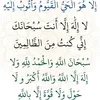 إِلَّا هُوَ الْحَيُّ الْقَيُّومُ وَأَتُوبُ إِلَيْهِ
لَا إِلَهَ إِلَّا أَنْتَ سُبْحَانَكَ
إِنِّي كُنْتُ مِنَ الظَّالِمِينَ
سُبْحَانَ اللَّهِ وَالْحَمْدُ لِلَّهِ وَلَا
إِلَهَ إِلَّا اللَّهُ وَاللَّهُ أَكْبَرُ وَلَا
حَوْلَ وَلَا قُوَّةَ إِلَّا بِاللَّهِ